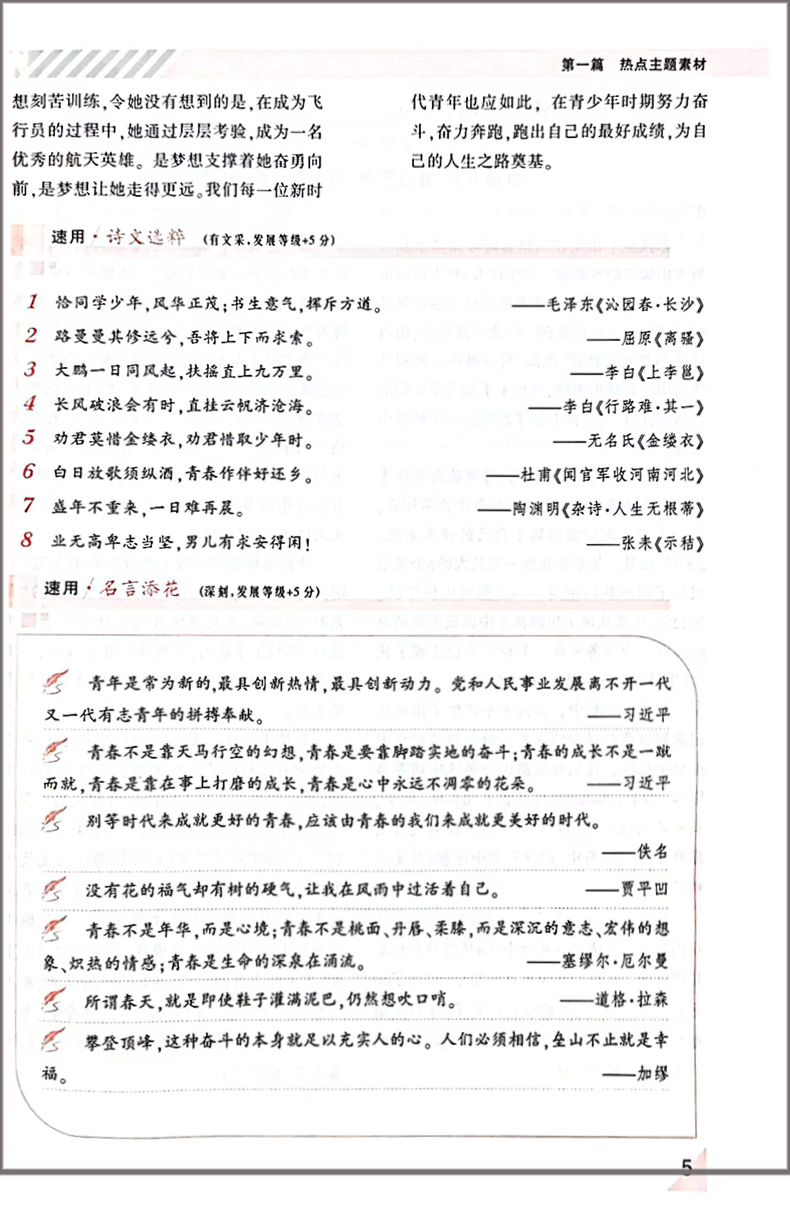 第一篇 热点主题素材
想刻苦训练,令她没有想到的是,在成为飞
行员的过程中,她通过层层考验,成为一名
优秀的航天英雄。是梦想支撑着她奋勇向
前,是梦想让她走得更远。我们每一位新时
代青年也应如此,在青少年时期努力奋
斗,奋力奔跑,跑出自己的最好成绩,为自
己的人生之路奠基。
速用·诗文选粹 (有文采,发展等级+5分)
1 恰同学少年,风华正茂;书生意气,挥斥方遒。 ——毛泽东《沁园春·长沙》
2 路曼曼其修远兮,吾将上下而求索。 ——屈原《离骚》
3 大鹏一日同风起,扶摇直上九万里。 ——李白《上李邕》
4 长风破浪会有时,直挂云帆济沧海。 ——李白《行路难·其一》
5 劝君莫惜金缕衣,劝君惜取少年时。 ——无名氏《金缕衣》
6 白日放歌须纵酒,青春作伴好还乡。 ——杜甫《闻官军收河南河北》
7 盛年不重来,一日难再晨。 ——陶渊明《杂诗·人生无根蒂》
8 业无高卑志当坚,男儿有求安得闲! ——张耒《示秸》
速用·名言添花 (深刻,发展等级+5分)
青年是常为新的,最具创新热情,最具创新动力。党和人民事业发展离不开一代
又一代有志青年的拼搏奉献。 ——习近平
青春不是靠天马行空的幻想,青春是要靠脚踏实地的奋斗;青春的成长不是一蹴
而就,青春是靠在事上打磨的成长,青春是心中永远不凋零的花朵。 ——习近平
别等时代来成就更好的青春,应该由青春的我们来成就更美好的时代。
——佚名
没有花的福气却有树的硬气,让我在风雨中过活着自己。 ——贾平凹
青春不是年华,而是心境;青春不是桃面、丹唇、柔膝,而是深沉的意志、宏伟的想
象、炽热的情感;青春是生命的深泉在涌流。 ——塞缪尔·厄尔曼
所谓春天,就是即使鞋子灌满泥巴,仍然想吹口哨。 ——道格·拉森
攀登顶峰,这种奋斗的本身就足以充实人的心。人们必须相信,垒山不止就是幸
福。 ——加缪
5